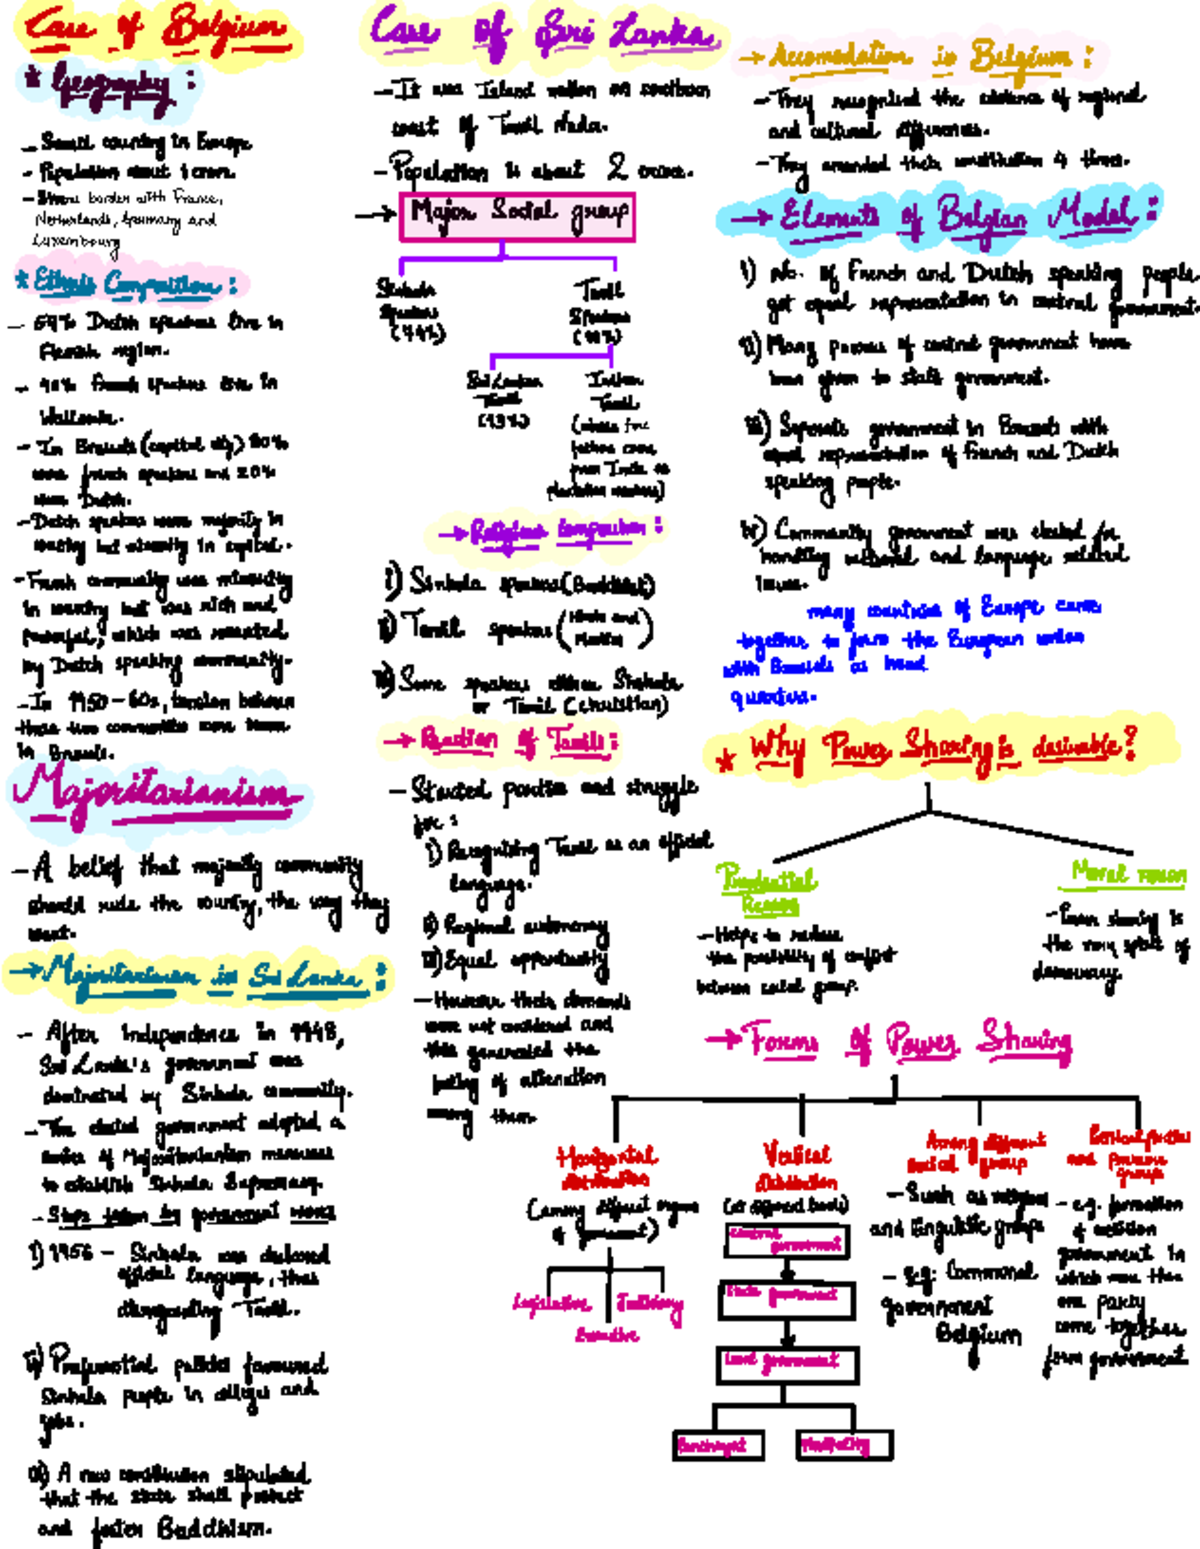 Case of Belgium
* Geography :
- Small country in Europe
- Population about 1 crore.
- Share border with France,
Netherlands, Germany and
Luxembourg
* Ethnic Composition :
- 59% Dutch speakers live in
Flemish region.
- 40% french speakers live in
Wallonia.
- In Brussels (capital city) 80%
were french speakers and 20%
were Dutch.
- Dutch speakers were majority in
country but minority in capital.
- French community was minority
in country but was rich and
powerful, which was resented
by Dutch speaking community.
- In 1950-60s, tension between
these two communities were
in Brussels.
Majoritarianism
- A belief that majority community
should rule the country, the way they
want.
→ Majoritarianism in Sri Lanka :
- After independence in 1948,
Sri Lanka's government was
dominated by Sinhala community.
- The elected government adopted a
series of Majoritarianism measures
to establish Sinhala Supremacy.
- Steps taken by government were:
i) 1956 - Sinhala was declared
official language, thus
disregarding Tamil.
ii) Preferential policies favoured
Sinhala people in colleges and
jobs.
iii) A new constitution stipulated
that the state shall protect
and foster Buddhism.
Case of Sri Lanka
- It was Island nation on southern
coast of Tamil Nadu.
- Population is about 2 crore.
→ Major Social group
Sinhala
Speakers
(74%)
Tamil
Speakers
(18%)
Sri Lankan
Tamil
(13%)
Indian
Tamil
(whose fore
fathers came
from India as
plantation workers)
→ Religious Composition :
i) Sinhala speakers (Buddhist)
ii) Tamil speakers (Hindu and
Muslim)
iii) Some speakers either Sinhala
or Tamil (christian)
→ Reaction of Tamils :
- Started parties and struggle
for :
i) Recognising Tamil as an official
language.
ii) Regional autonomy
iii) Equal opportunity
- However their demands
were not considered and
this generated the
feeling of alienation
among them.
→ Accomodation in Belgium :
- They recognised the existence of regional
and cultural differences.
- They amended their constitution 4 times.
→ Elements of Belgian Model :
i) no. of French and Dutch speaking people
got equal representation in central government.
ii) Many powers of central government have
been given to state government.
iii) Separate government in Brussels with
equal representation of French and Dutch
speaking people.
iv) Community government was elected for
handling cultural and language related
issues.
many countries of Europe came
together to form the European union
with Brussels as head
quarters.
* Why Power Sharing is desirable?
Prudential
Reason
- Helps to reduce
the possibility of conflict
between social group.
Moral reason
- Power sharing is
the very spirit of
democracy.
→ Forms of Power Sharing
Horizontal
distribution
(among different organs
of government)
Legislative
Judiciary
Executive
Vertical
distribution
(at different levels)
Central
government
State government
Local government
Panchayat
Municipality
Among different
social group
- Such as religious
and linguistic groups
- e.g: Communal
government
Belgium
Political parties
and pressure
groups
- e.g. formation
of coalition
government in
which more than
one party
come together
form government